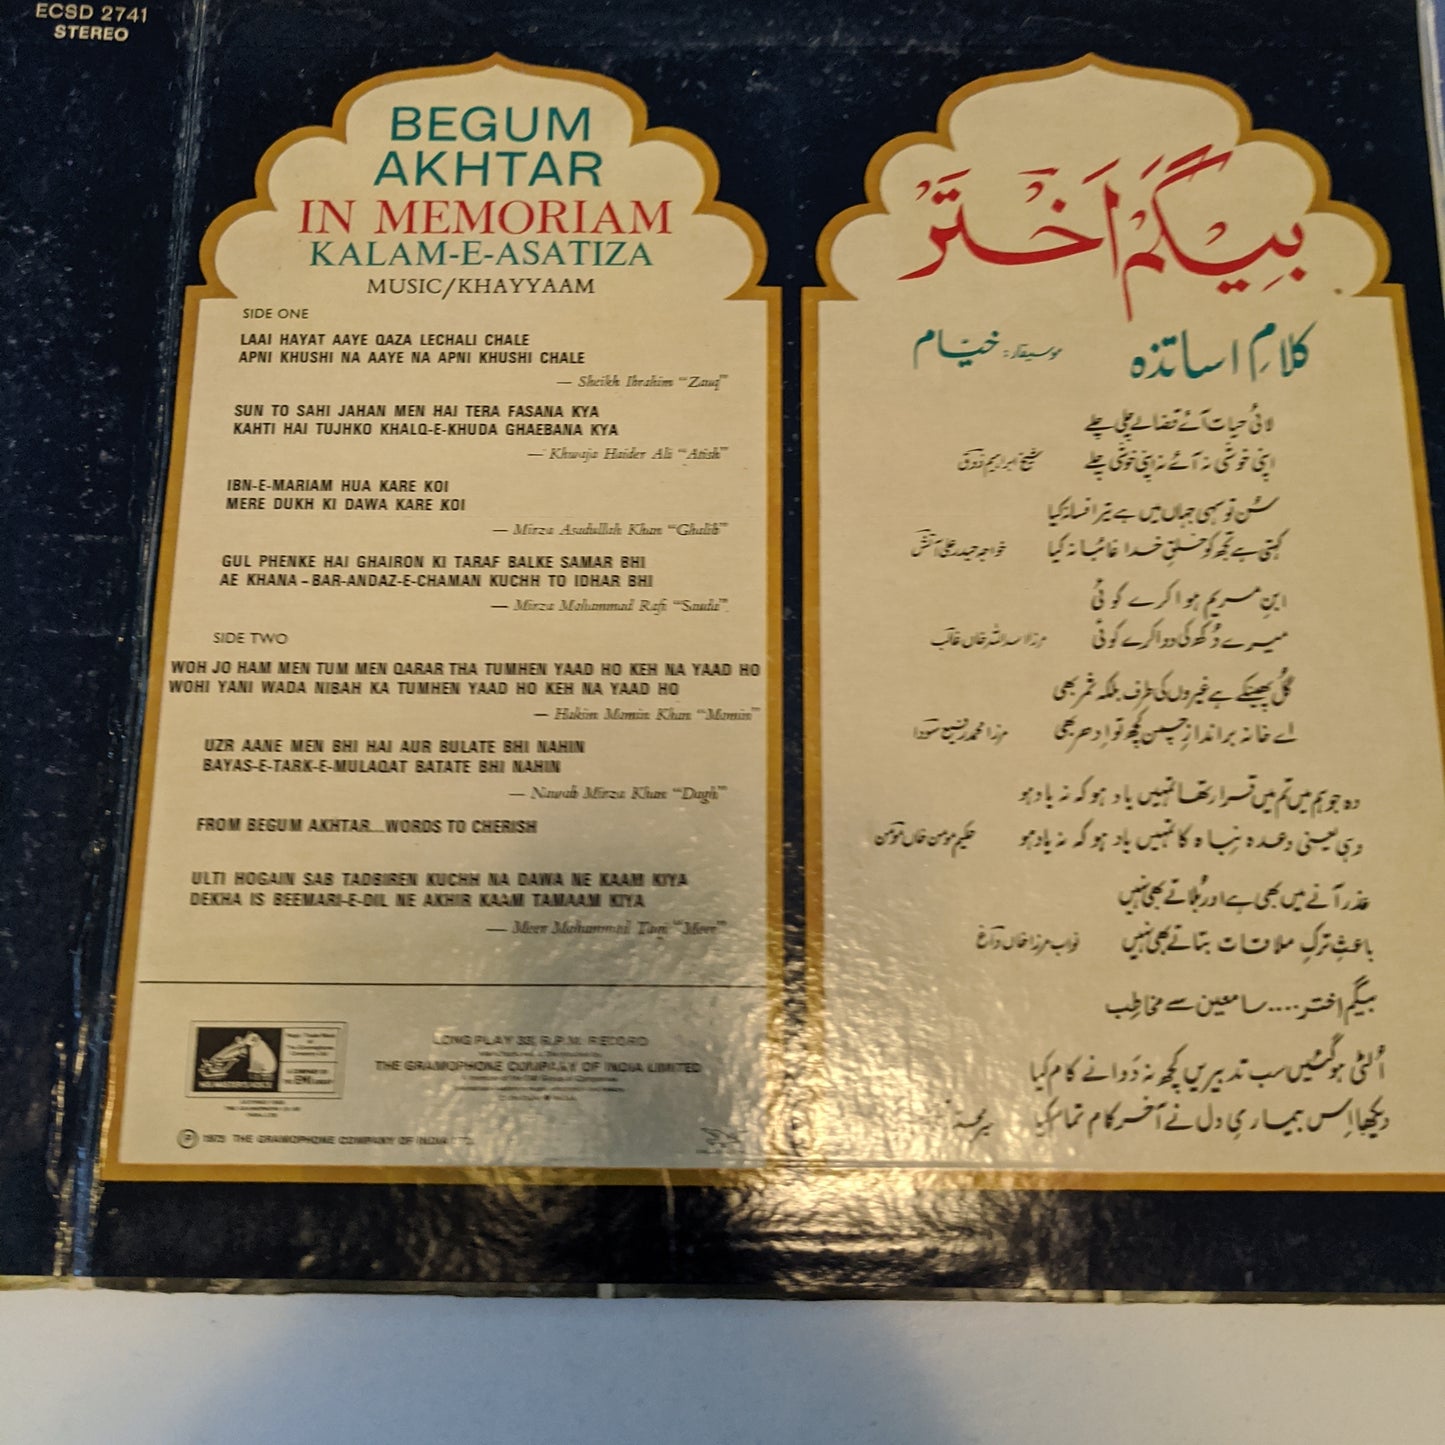 ECSD 2741
STEREO
BEGUM
AKHTAR
IN MEMORIAM
KALAM-E-ASATIZA
MUSIC/KHAYYAAM
SIDE ONE
LAAI HAYAT AAYE QAZA LECHALI CHALE
APNI KHUSHI NA AAYE NA APNI KHUSHI CHALE
— Sheikh Ibrahim "Zauq"
SUN TO SAHI JAHAN MEN HAI TERA FASANA KYA
KAHTI HAI TUJHKO KHALQ-E-KHUDA GHAEBANA KYA
— Khwaja Haider Ali "Atish"
IBN-E-MARIAM HUA KARE KOI
MERE DUKH KI DAWA KARE KOI
— Mirza Asadullah Khan "Ghalib"
GUL PHENKE HAI GHAIRON KI TARAF BALKE SAMAR BHI
AE KHANA-BAR-ANDAZ-E-CHAMAN KUCHH TO IDHAR BHI
— Mirza Mohammad Rafi "Sauda".
SIDE TWO
WOH JO HAM MEN TUM MEN QARAR THA TUMHEN YAAD HO KEH NA YAAD HO
WOHI YANI WADA NIBAH KA TUMHEN YAAD HO KEH NA YAAD HO
— Hakim Momin Khan "Momin"
UZR AANE MEN BHI HAI AUR BULATE BHI NAHIN
BAYAS-E-TARK-E-MULAQAT BATATE BHI NAHIN
— Nawab Mirza Khan "Dagh"
FROM BEGUM AKHTAR...WORDS TO CHERISH
ULTI HOGAIN SAB TADBIREN KUCHH NA DAWA NE KAAM KIYA
DEKHA IS BEEMARI-E-DIL NE AKHIR KAAM TAMAAM KIYA
— Meer Mohammad Taqi "Meer"
LONG PLAY 33⅓ R.P.M. RECORD
THE GRAMOPHONE COMPANY OF INDIA LIMITED
℗ 1975 THE GRAMOPHONE COMPANY OF INDIA LTD.
بیگم اختر
کلامِ اساتذہ موسیقار: خیّام
لائی حیات آئے قضا لے چلی چلے
اپنی خوشی نہ آئے نہ اپنی خوشی چلے شیخ ابراہیم ذوق
سُن تو سہی جہاں میں ہے تیرا فسانہ کیا
کہتی ہے تجھ کو خلقِ خدا غائبانہ کیا خواجہ حیدر علی آتش
ابنِ مریم ہوا کرے کوئی
میرے دُکھ کی دوا کرے کوئی مرزا اسد اللہ خاں غالب
گل پھینکے ہے غیروں کی طرف بلکہ ثمر بھی
اے خانہ بر اندازِ چمن کچھ تو ادھر بھی مرزا محمد رفیع سودا
وہ جو ہم میں تم میں قرار تھا تمہیں یاد ہو کہ نہ یاد ہو
وہی یعنی وعدہ نباہ کا تمہیں یاد ہو کہ نہ یاد ہو حکیم مومن خاں مومن
عذر آنے میں بھی ہے اور بُلاتے بھی نہیں
باعثِ ترکِ ملاقات بتاتے بھی نہیں نواب مرزا خاں داغ
بیگم اختر.... سامعین سے مخاطب
اُلٹی ہوگئیں سب تدبیریں کچھ نہ دوا نے کام کیا
دیکھا اِس بیماریِ دل نے آخر کام تمام کیا